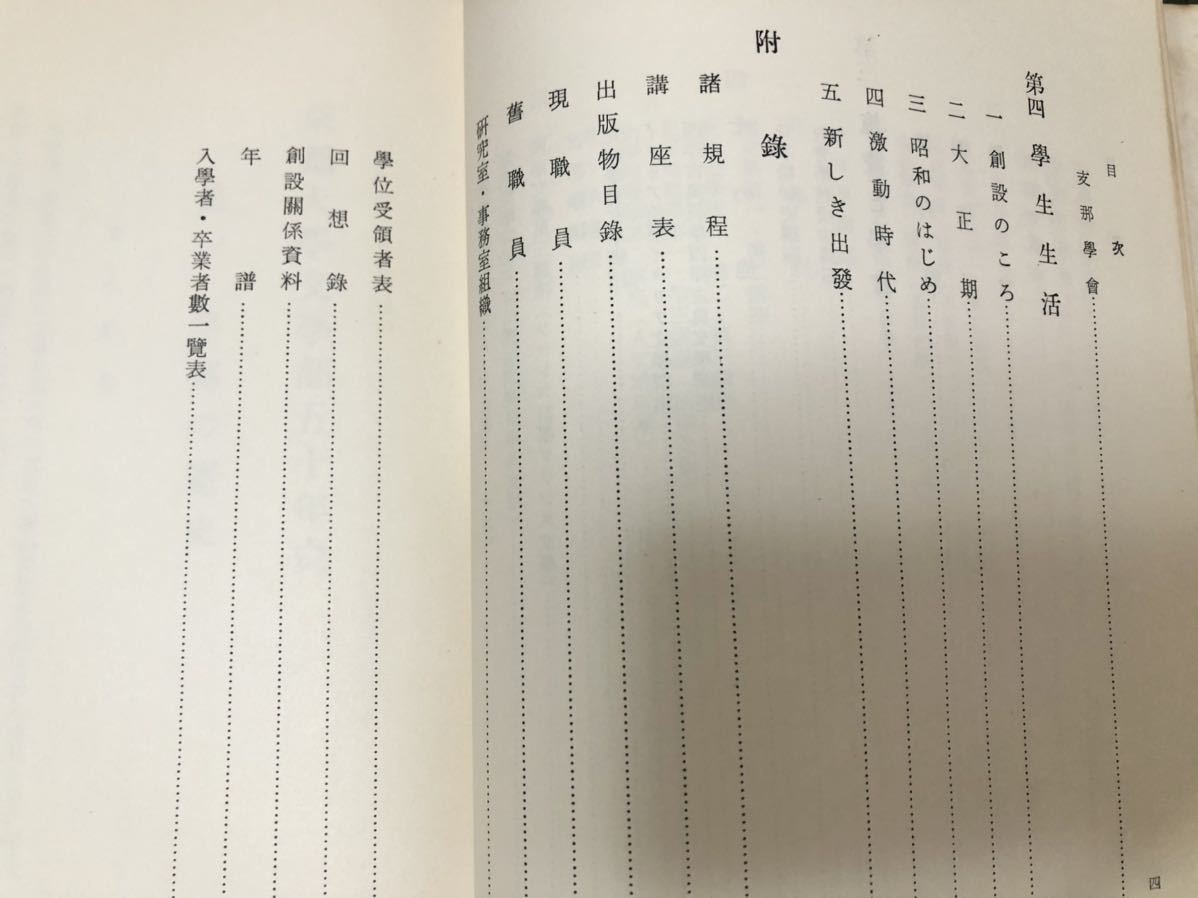 目次
支那學會
第四 學生生活
一 創設のころ
二 大正期
三 昭和のはじめ
四 激動時代
五 新しき出發
附錄
諸規程
講座表
出版物目錄
現職員
舊職員
研究室・事務室組織
四
學位受領者表
回想錄
創設關係資料
年譜
入學者・卒業者數一覽表